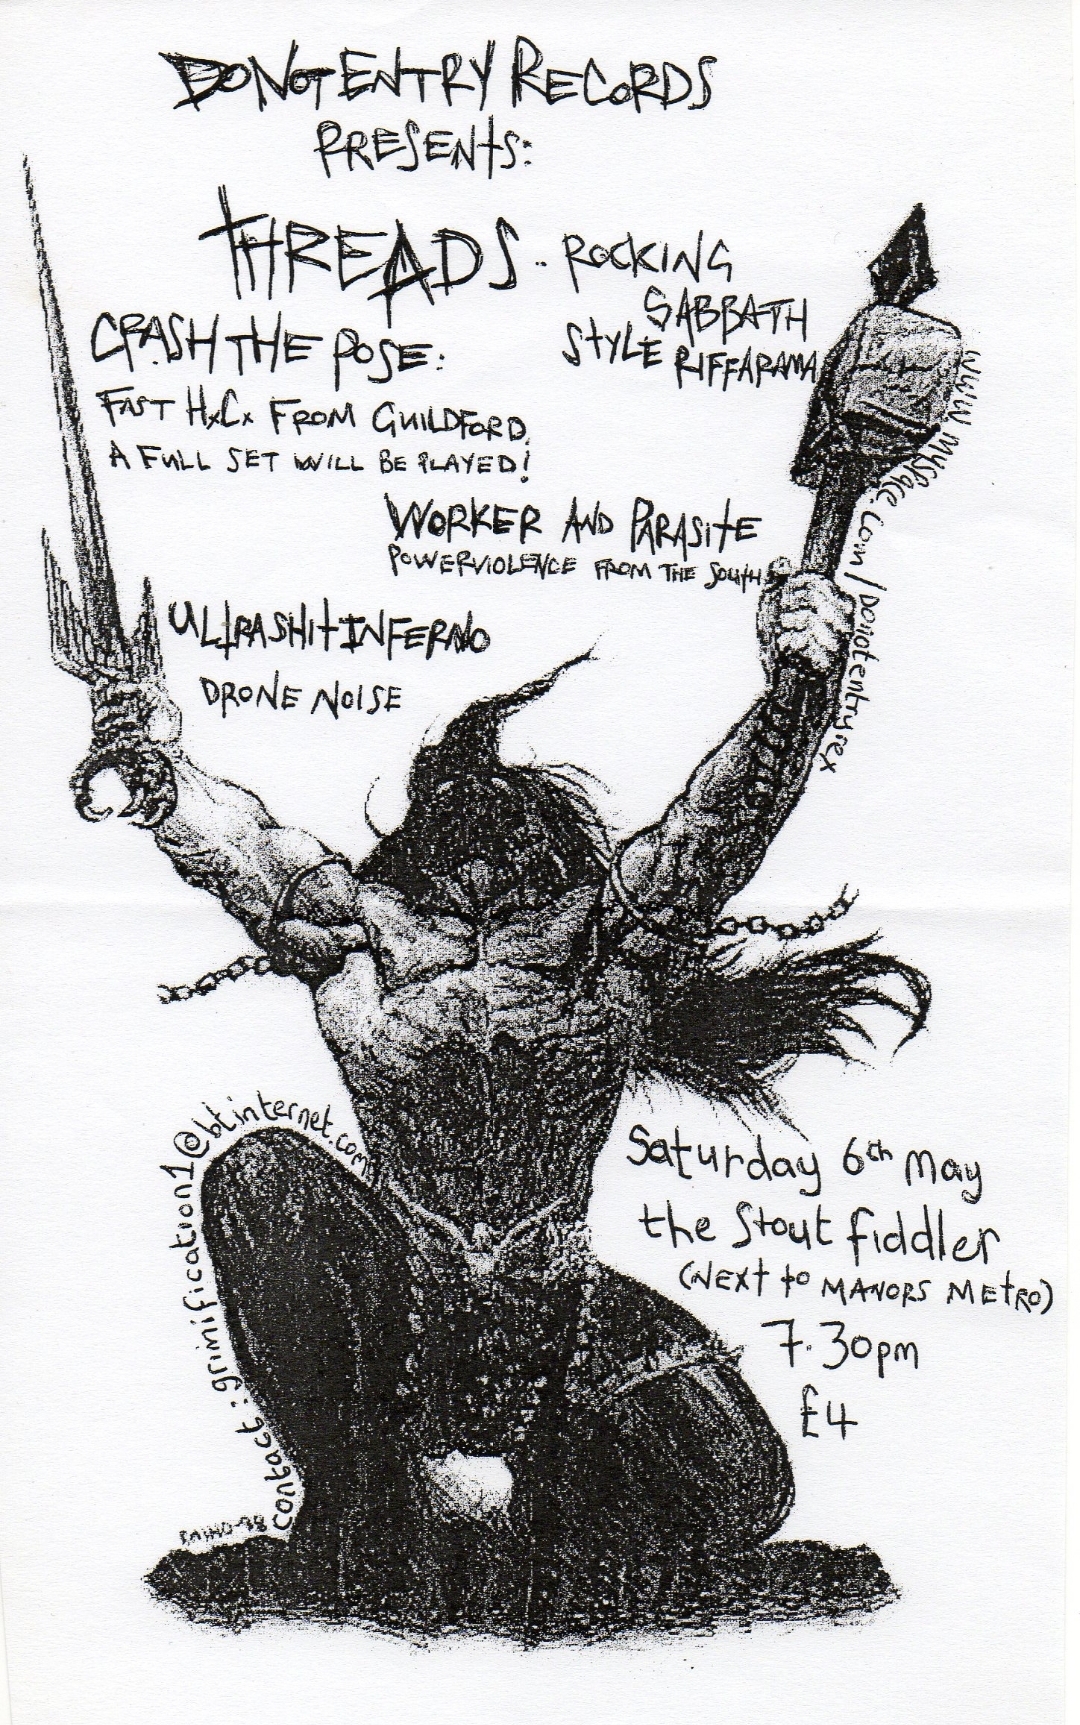 DONOTENTRY RECORDS
PRESENTS:
THREADS.. ROCKING
SABBATH
STYLE RIFFARAMA
CRASH THE POSE:
FAST HxCx FROM GUILDFORD.
A FULL SET WILL BE PLAYED!
WORKER AND PARASITE
POWERVIOLENCE FROM THE SOUTH
ULTRASHITINFERNO
DRONE NOISE
www.myspace.com/donotentryrex
contact: grimification1@btinternet.com
Saturday 6th May
the Stout fiddler
(NEXT to MANORS METRO)
7.30pm
£4